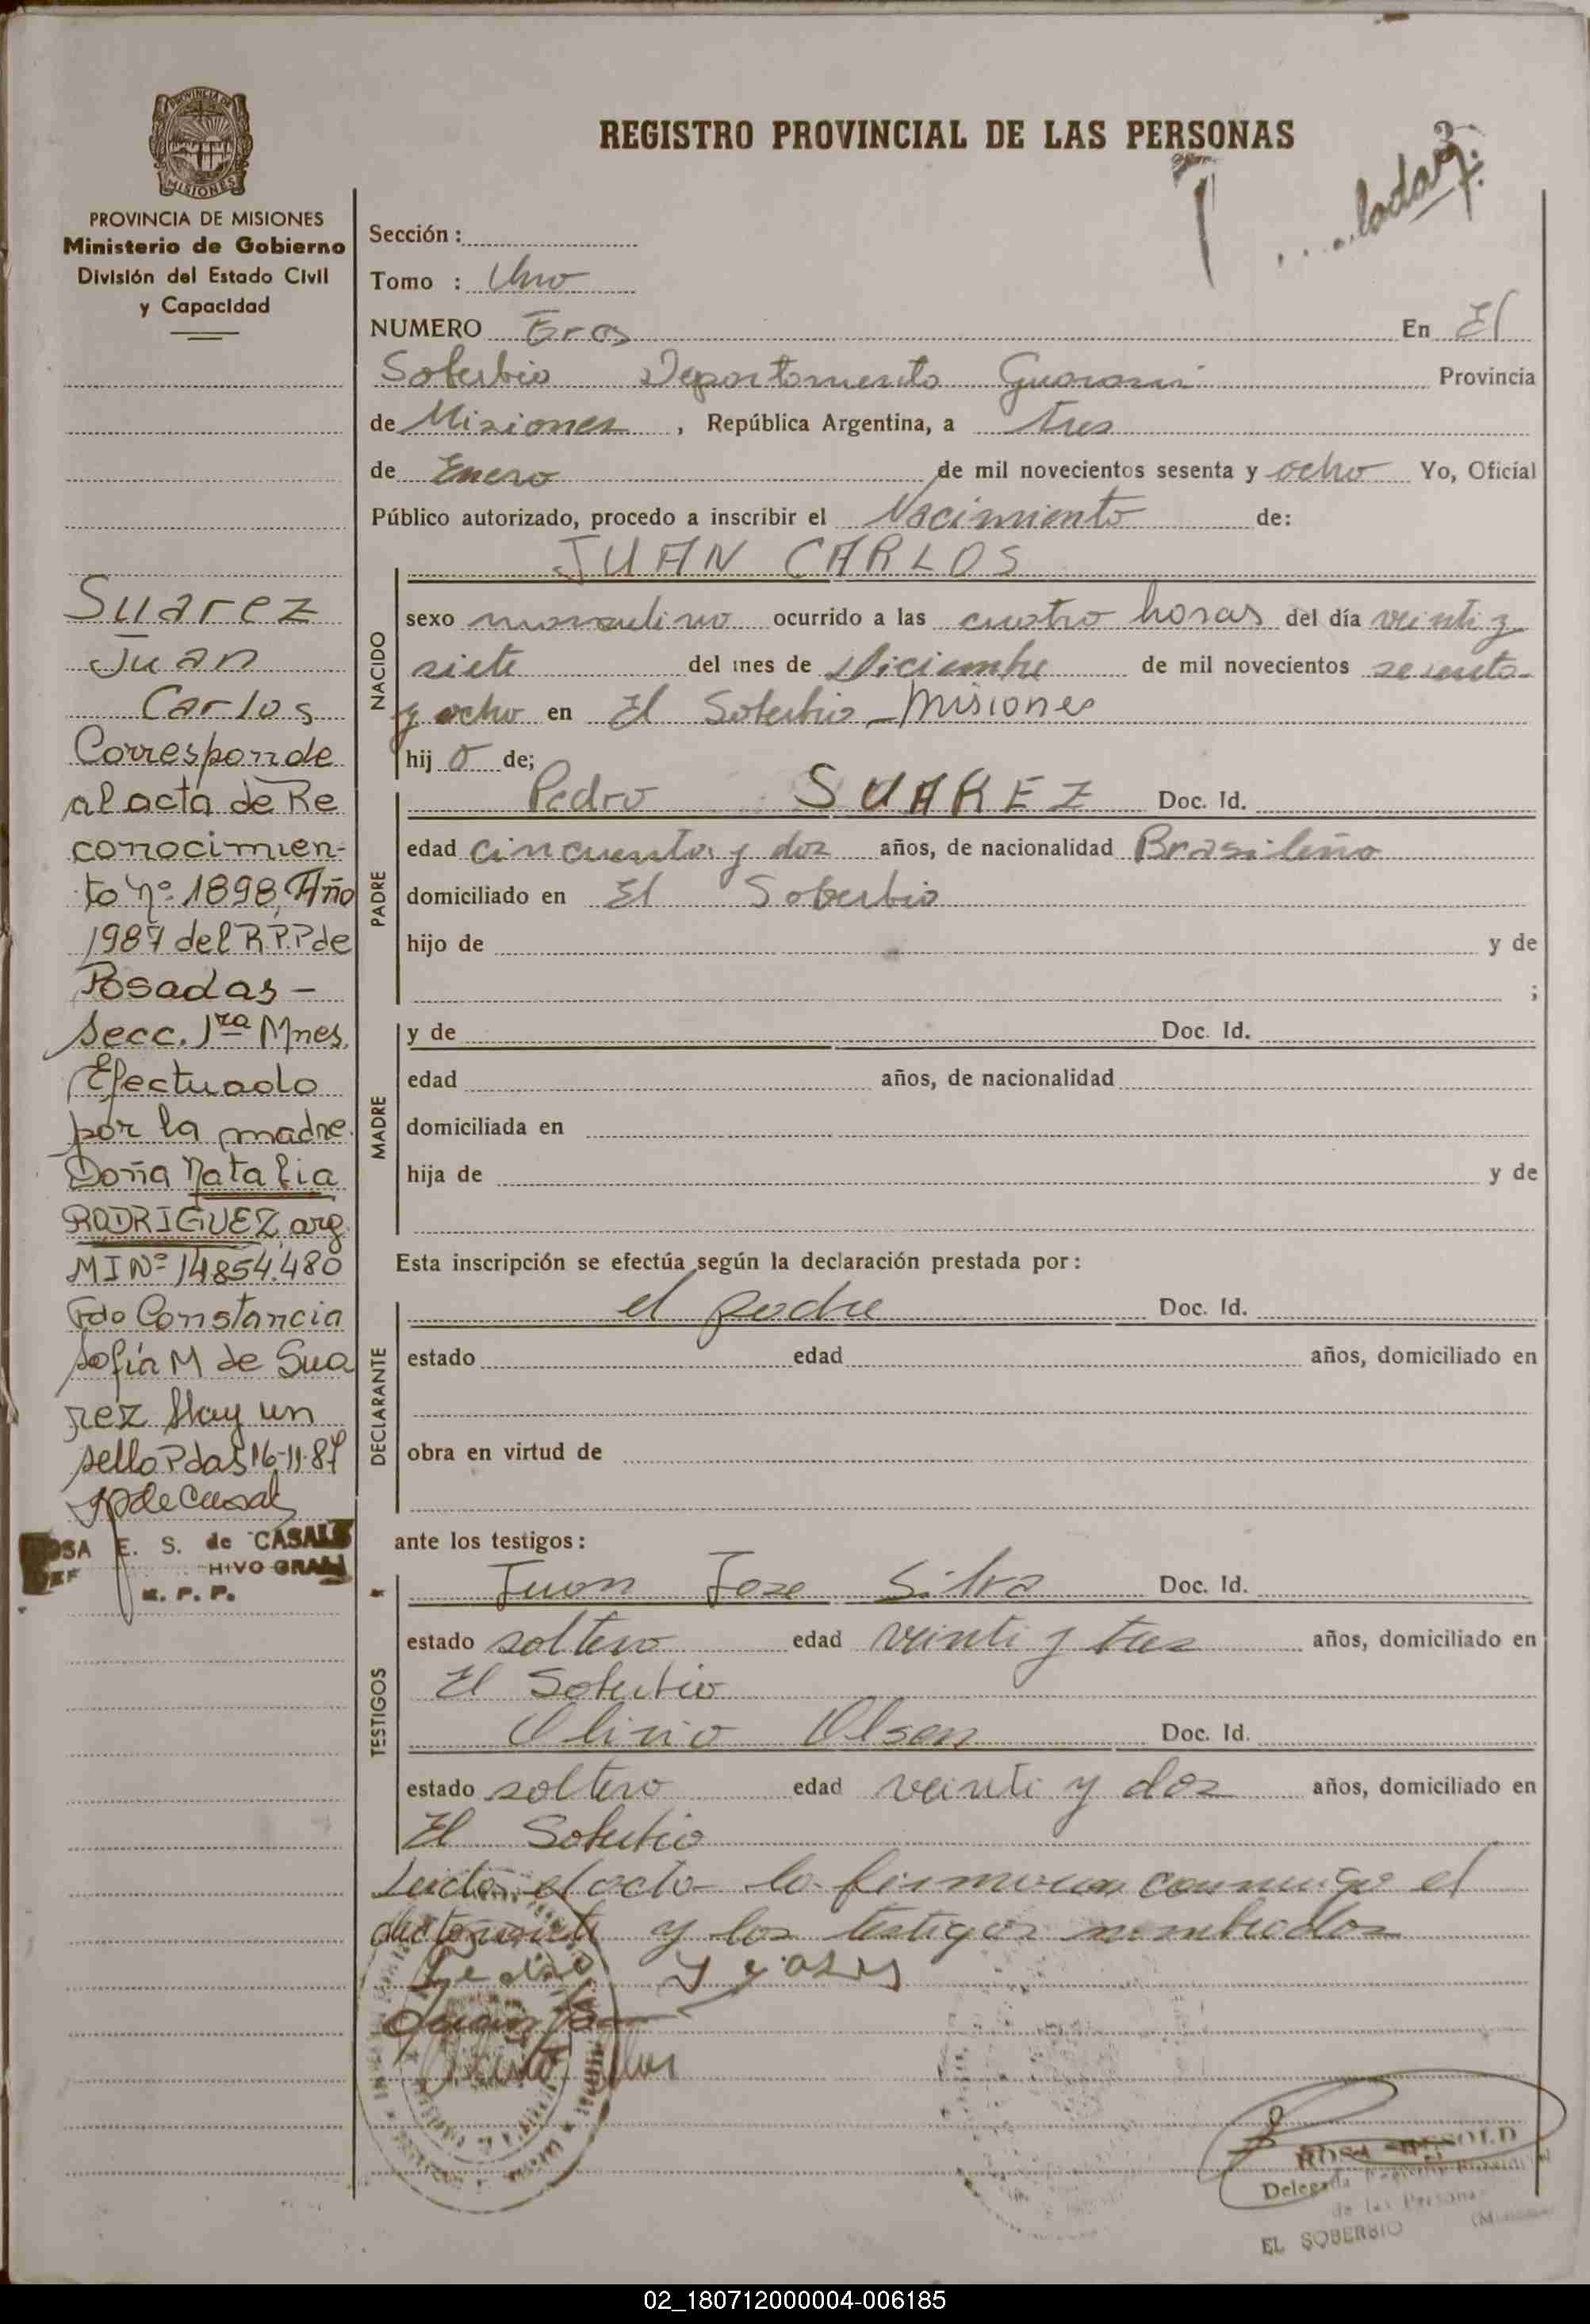 REGISTRO PROVINCIAL DE LAS PERSONAS
PROVINCIA DE MISIONES
Ministerio de Gobierno
División del Estado Civil
y Capacidad
Suarez
Juan
Carlos
Corresponde
al acta de Re
conocimien-
to Nº 1898, Año
1987 del R.P.P de
Posadas -
Secc. 1ra Mnes.
Efectuado
por la madre
Doña Natalia
RODRIGUEZ arg.
MI Nº 14854.480
Fdo Constancia
Sofía M de Sua
rez Hay un
sello Pdas 16-11-87
E. S. de CASALS
R. P. P.
Sección :
Tomo : Uno
NUMERO Tres En El
Soberbio Departamento Guarani Provincia
de Misiones , República Argentina, a tres
de Enero de mil novecientos sesenta y ocho Yo, Oficial
Público autorizado, procedo a inscribir el Nacimiento de:
JUAN CARLOS
NACIDO
sexo masculino ocurrido a las cuatro horas del día veinti y
siete del mes de Diciembre de mil novecientos sesenta
y ocho en El Soberbio - Misiones
hij o de;
PADRE
Pedro SUAREZ Doc. Id.
edad cincuenta y dos años, de nacionalidad Brasileño
domiciliado en El Soberbio
hijo de y de
;
MADRE
y de Doc. Id.
edad años, de nacionalidad
domiciliada en
hija de y de
Esta inscripción se efectúa según la declaración prestada por :
DECLARANTE
el padre Doc. Id.
estado edad años, domiciliado en
obra en virtud de
ante los testigos :
TESTIGOS
Juan Jose Silva Doc. Id.
estado soltero edad veinti y tres años, domiciliado en
El Soberbio
Olirio Olsen Doc. Id.
estado soltero edad veinti y dos años, domiciliado en
El Soberbio
Leida el acta la firmaron conmigo el
declarante y los testigos nombrados
ROSA
Delegada
de las Personas
EL SOBERBIO
02_180712000004-006185